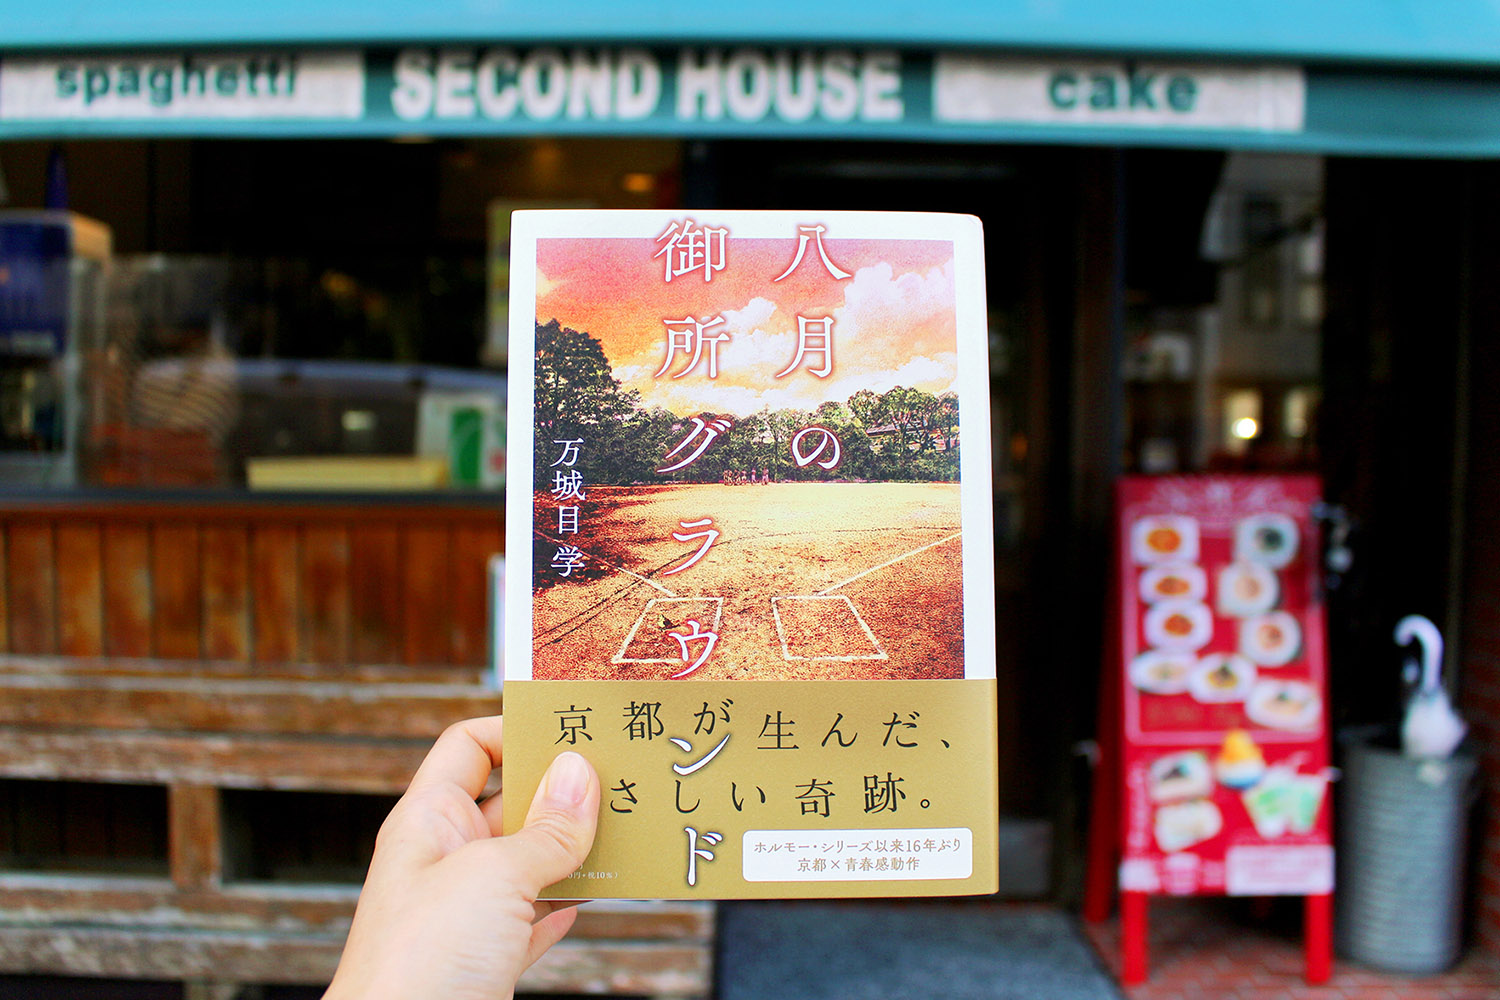 spaghetti
SECOND HOUSE
cake
八月の
御所グラウンド
万城目学
京都が生んだ、
さしい奇跡。
ホルモー・シリーズ以来16年ぶり
京都×青春感動作
円+税10%)